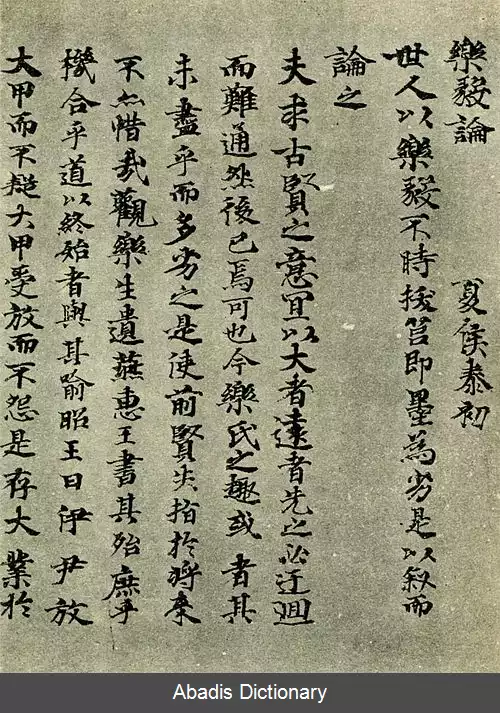 樂毅論 夏侯泰初
世人以樂毅不時拔莒即墨為劣是以叙而
論之
夫求古賢之意宜以大者遠者先之必迂迴
而難通然後已焉可也今樂氏之趣或者其
未盡乎而多劣之是使前賢失指於將來
不亦惜哉觀樂生遺燕惠王書其殆庶乎
機合乎道以終始者與其喻昭王曰伊尹放
大甲而不疑大甲受放而不怨是存大業於
Abadis Dictionary